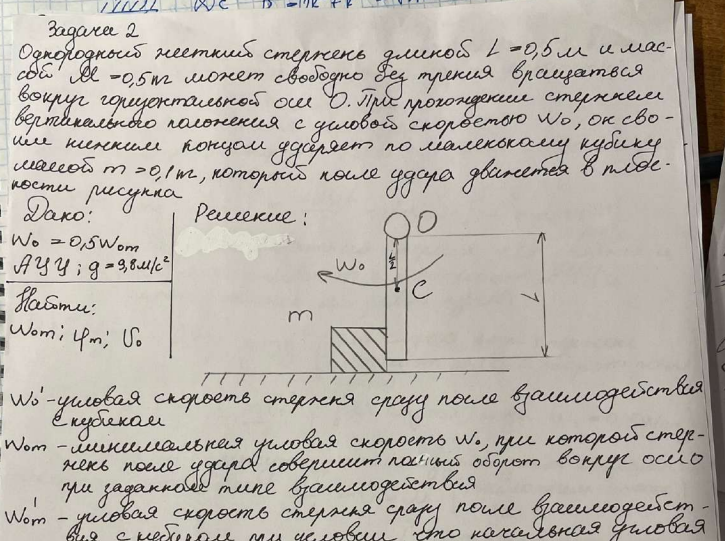 Задача 2
Однородный жесткий стержень длиной L = 0,5 м и мас-
сой M = 0,5 кг может свободно без трения вращаться
вокруг горизонтальной оси О. При прохождении стержнем
вертикального положения с угловой скоростью ω₀, он сво-
им нижним концом ударяет по маленькому кубику
массой m = 0,1 кг, который после удара движется в плос-
кости рисунка
Дано:
Решение:
ω₀ = 0,5ω₀m
АУУ; g = 9,8 м/с²
Найти:
ω₀m; φm; υ₀
O
L/2
ω₀
C
L
m
ω₀' - угловая скорость стержня сразу после взаимодействия
с кубиком
ω₀m - минимальная угловая скорость ω₀, при которой стер-
жень после удара совершит полный оборот вокруг оси О
при заданном типе взаимодействия
ω₀m' - угловая скорость стержня сразу после взаимодейст-
вия с кубиком при условии, что начальная угловая